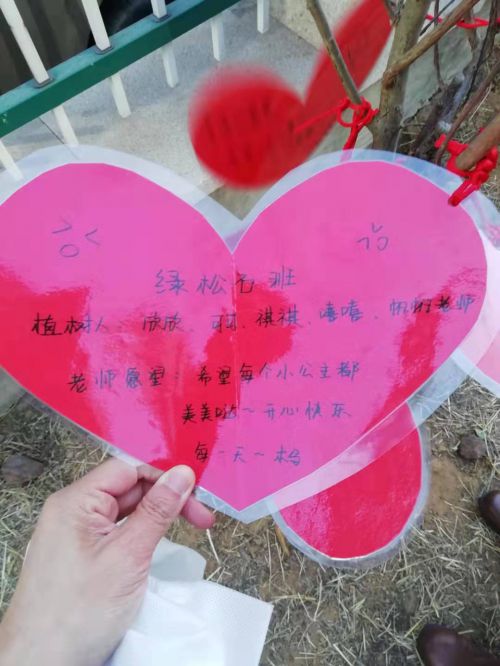 绿松石班
植树人：欣欣、可可、祺祺、嘻嘻、帆帆老师
老师愿望：希望每个小公主都
美美哒～开心快乐
每一天～